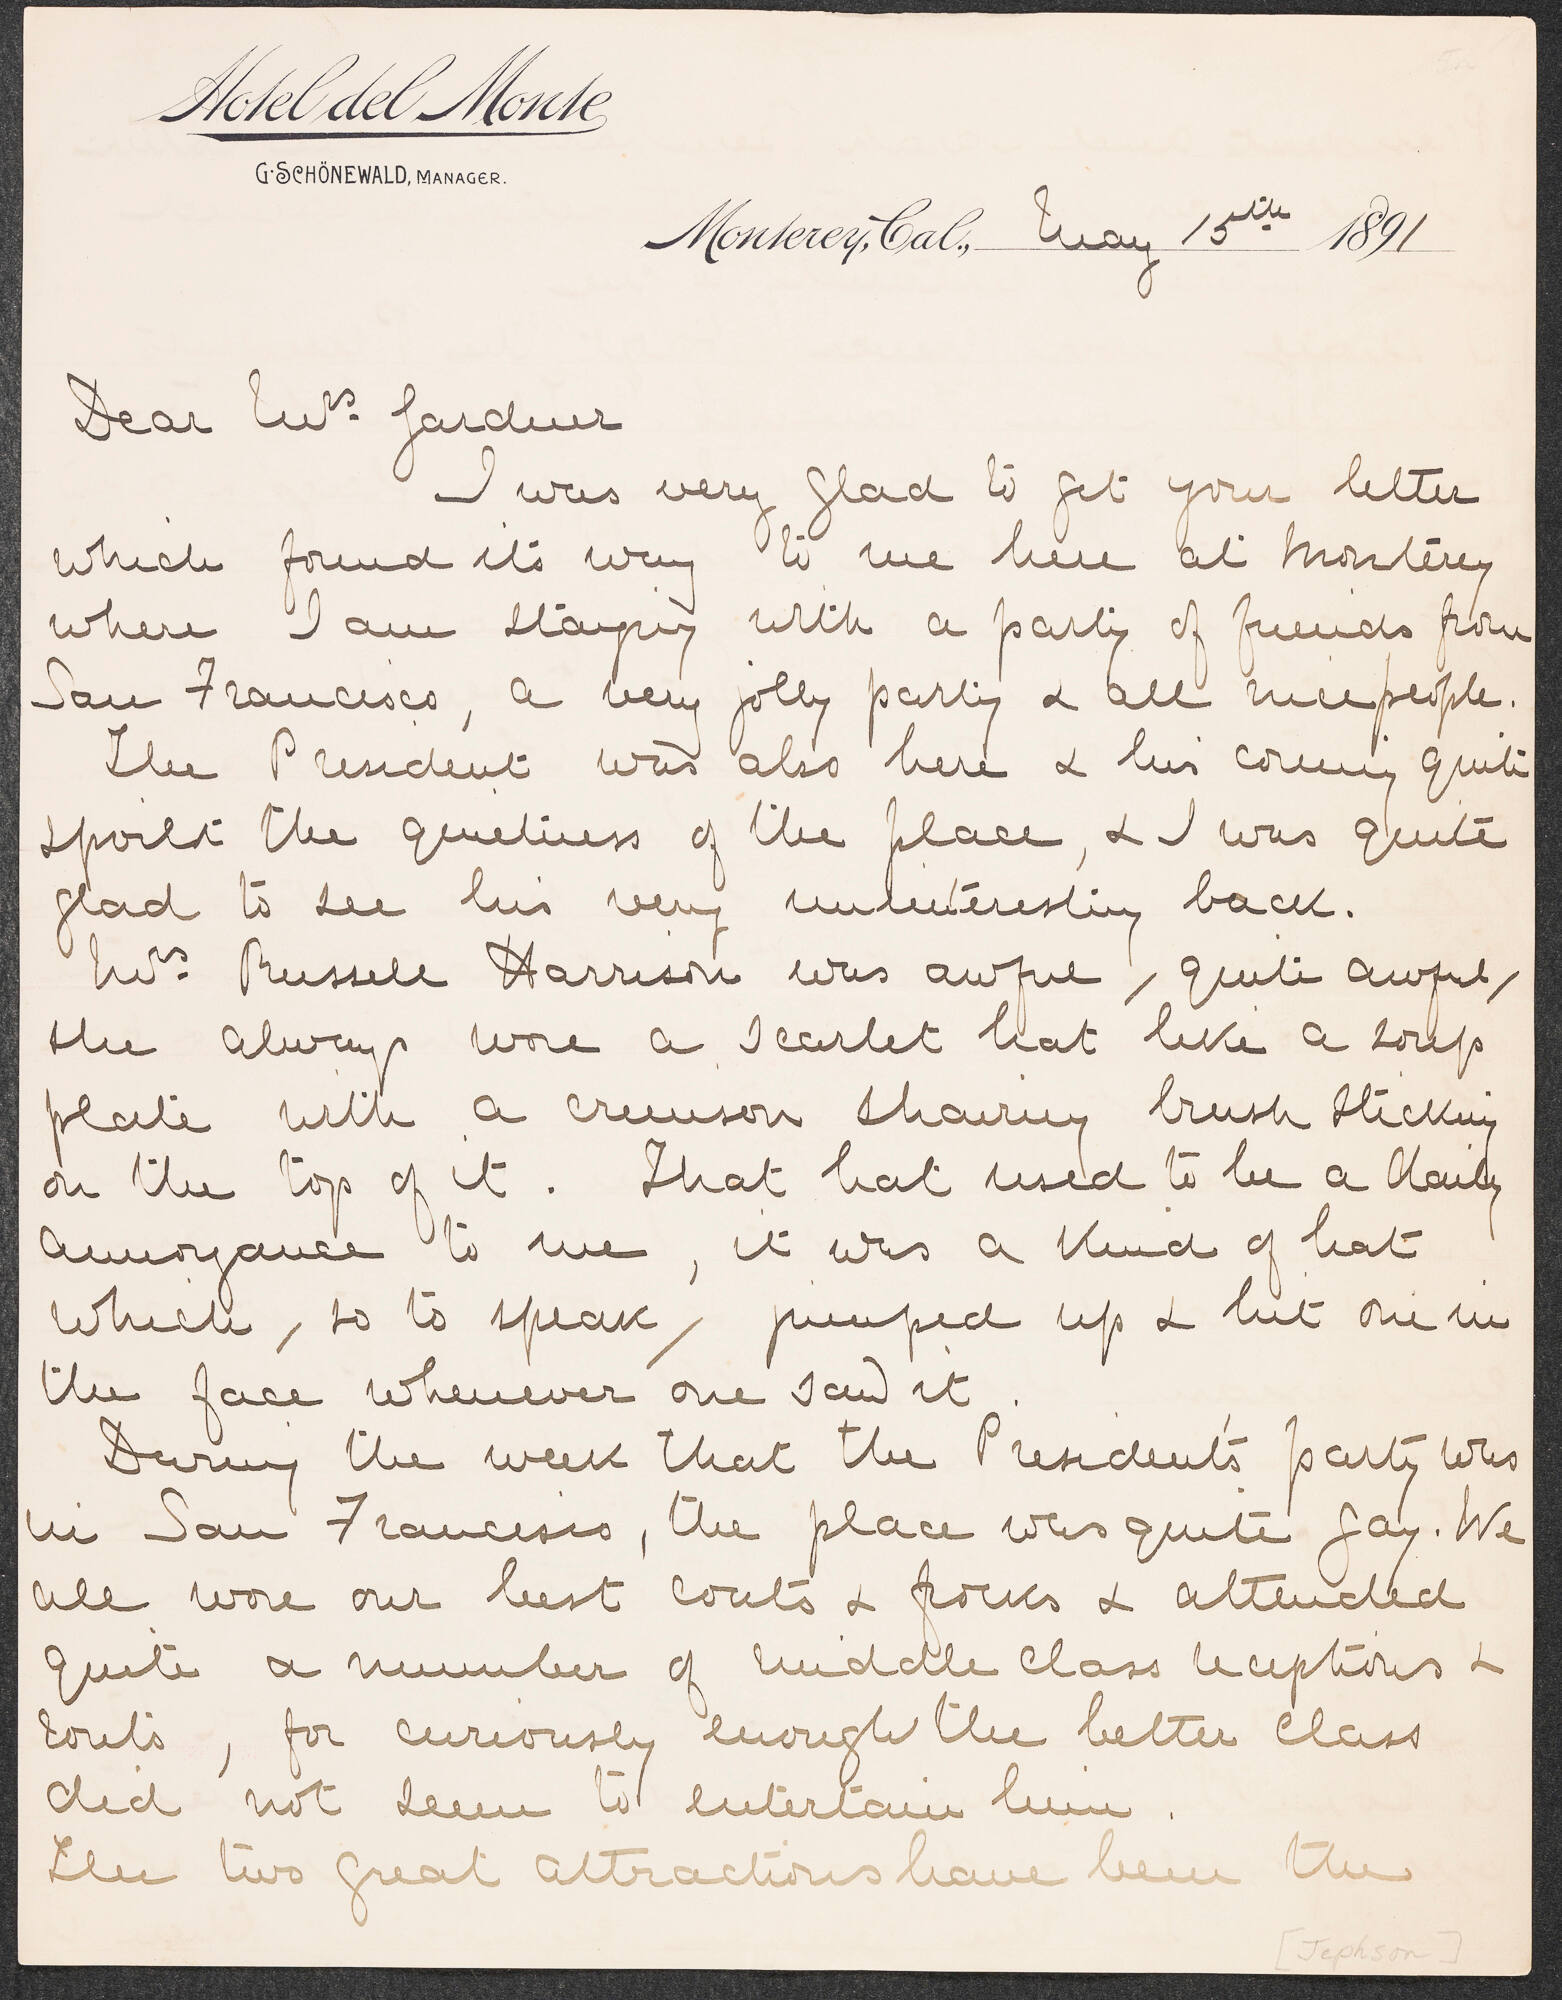 Hotel del Monte
G. SCHÖNEWALD, MANAGER.
Monterey, Cal., May 15th 1891
Dear Mrs. Gardner
I was very glad to get your letter
which found its way to me here at Monterey
where I am staying with a party of friends from
San Francisco, a very jolly party & all nice people.
The President was also here & his coming quite
spoilt the quietness of the place, & I was quite
glad to see his very uninteresting back.
Mrs. Russell Harrison was awful, quite awful,
she always wore a scarlet hat like a soup
plate with a crimson shaving brush sticking
on the top of it. That hat used to be a daily
annoyance to me, it was a kind of hat
which, so to speak, jumped up & hit one in
the face whenever one saw it.
During the week that the President's party was
in San Francisco, the place was quite gay. We
all wore our best coats & frocks & attended
quite a number of middle class receptions &
routs, for curiously enough the better class
did not seem to entertain him.
The two great attractions have been the
[Jephson]